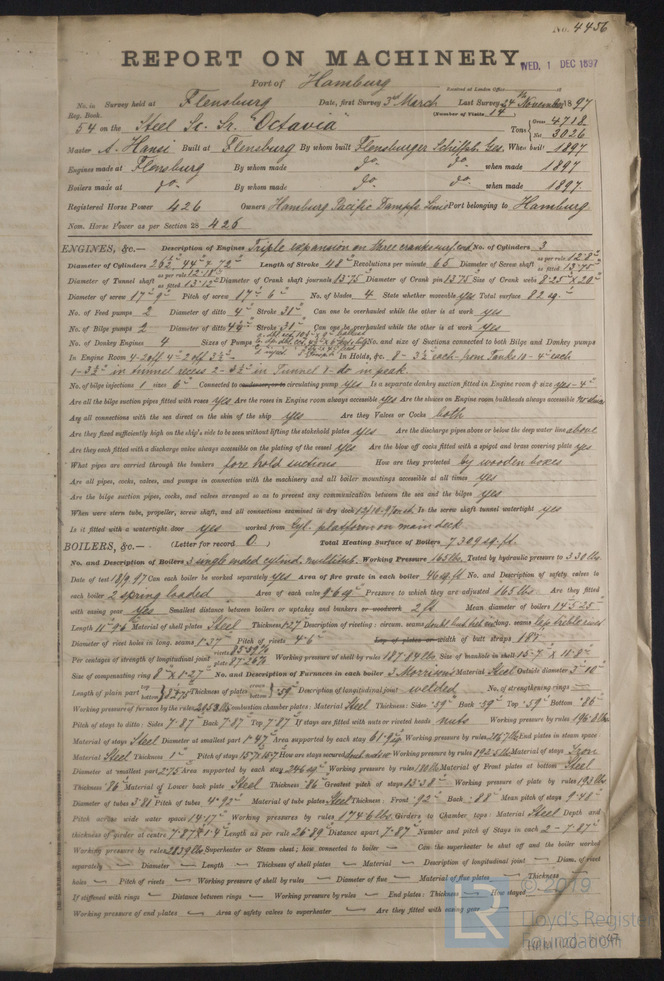 No. 4456
REPORT ON MACHINERY.
WED, 1 DEC 1897
Port of Hamburg
Received at London Office
No. in Survey held at Flensburg Date, first Survey 3rd March Last Survey 24th November 1897
Reg. Book. (Number of Visits 14)
54 on the Steel Sc. Sr. "Octavia" Tons Gross 4718 Net 3026
Master A. Hansi Built at Flensburg By whom built Flensburger Schiffsb. Ges. When built 1897
Engines made at Flensburg By whom made do. do. when made 1897
Boilers made at do. By whom made do. do. when made 1897
Registered Horse Power 426 Owners Hamburg Pacific Dampfs Linie Port belonging to Hamburg
Nom. Horse Power as per Section 28 426
ENGINES, &c.— Description of Engines Triple expansion on three cranks No. of Cylinders 3
Diameter of Cylinders 26½" 44" & 72" Length of Stroke 48" Revolutions per minute 65 Diameter of Screw shaft as per rule 12.8" as fitted 13.75"
Diameter of Tunnel shaft as per rule 12.18" as fitted 13.12" Diameter of Crank shaft journals 13.75" Diameter of Crank pin 13.75" Size of Crank webs 8.25" x 28"
Diameter of screw 17' 9" Pitch of screw 17' 6" No. of blades 4 State whether moveable yes Total surface 82 sq.
No. of Feed pumps 2 Diameter of ditto 4" Stroke 31" Can one be overhauled while the other is at work yes
No. of Bilge pumps 2 Diameter of ditto 4½" Stroke 31" Can one be overhauled while the other is at work yes
No. of Donkey Engines 4 Sizes of Pumps No. and size of Suctions connected to both Bilge and Donkey pumps
In Engine Room 4-2 off 4" 2 off 3½" In Holds, &c. 8 - 3½" each - from Tanks 10 - 4" each
1 - 3½" in tunnel recess 2 - 3½" in Tunnel 1 - do in peak.
No. of bilge injections 1 sizes 6" Connected to circulating pump yes Is a separate donkey suction fitted in Engine room & size yes - 4"
Are all the bilge suction pipes fitted with roses yes Are the roses in Engine room always accessible yes Are the sluices on Engine room bulkheads always accessible
Are all connections with the sea direct on the skin of the ship yes Are they Valves or Cocks both
Are they fixed sufficiently high on the ship's side to be seen without lifting the stokehold plates yes Are the discharge pipes above or below the deep water line above
Are they each fitted with a discharge valve always accessible on the plating of the vessel yes Are the blow off cocks fitted with a spigot and brass covering plate yes
What pipes are carried through the bunkers fore hold suctions How are they protected by wooden boxes
Are all pipes, cocks, valves, and pumps in connection with the machinery and all boiler mountings accessible at all times yes
Are the bilge suction pipes, cocks, and valves arranged so as to prevent any communication between the sea and the bilges yes
When were stern tube, propeller, screw shaft, and all connections examined in dry dock Is the screw shaft tunnel watertight yes
Is it fitted with a watertight door yes worked from Cyl. platform on main deck
BOILERS, &c.— (Letter for record O) Total Heating Surface of Boilers 7309 sq. ft.
No. and Description of Boilers 3 single ended cylind. multitub. Working Pressure 165 lbs. Tested by hydraulic pressure to 330 lbs
Date of test 18/9 97 Can each boiler be worked separately yes Area of fire grate in each boiler 46 sq. ft No. and Description of safety valves to
each boiler 2 spring loaded Area of each valve 9.6 sq" Pressure to which they are adjusted 165 lbs. Are they fitted
with easing gear yes Smallest distance between boilers or uptakes and bunkers or woodwork 2 ft Mean diameter of boilers 14' 5.25"
Length 11' 9.6" Material of shell plates Steel Thickness 1.27" Description of riveting: circum. seams long. seams lap treble riv
Diameter of rivet holes in long. seams 1.37" Pitch of rivets 4.6" Lap of plates or width of butt straps 18.5"
Per centages of strength of longitudinal joint rivets 85.59% plate 87.26% Working pressure of shell by rules 187.84 lbs Size of manhole in shell 15.7" x 11.8"
Size of compensating ring 8" x 1.27" No. and Description of Furnaces in each boiler 3 Morrisons Material Steel Outside diameter 3' 10"
Length of plain part top bottom Thickness of plates crown bottom .59" Description of longitudinal joint welded No. of strengthening rings —
Working pressure of furnace by the rules 205.3 lbs Combustion chamber plates: Material Steel Thickness: Sides .59" Back .59" Top .59" Bottom .86"
Pitch of stays to ditto: Sides 7.87" Back 7.87" Top 7.87" If stays are fitted with nuts or riveted heads nuts Working pressure by rules 196.8 lbs
Material of stays Steel Diameter at smallest part 1.47" Area supported by each stay 61.9 sq Working pressure by rules End plates in steam space:
Material Steel Thickness 1" Pitch of stays 15.7" x 15.7" How are stays secured Working pressure by rules 192.5 lbs Material of stays Iron
Diameter at smallest part 2.75" Area supported by each stay 246 sq" Working pressure by rules 180 lbs Material of Front plates at bottom Steel
Thickness .86" Material of Lower back plate Steel Thickness .86" Greatest pitch of stays 13.58" Working pressure of plate by rules 193 lbs
Diameter of tubes 3.86" Pitch of tubes 4.92" Material of tube plates Steel Thickness: Front .92" Back .88" Mean pitch of stays 9.48"
Pitch across wide water spaces 14.17" Working pressures by rules 174.6 lbs Girders to Chamber tops: Material Steel Depth and
thickness of girder at centre 7.87" & 1.4" Length as per rule 26.89" Distance apart 7.87" Number and pitch of Stays in each 2 - 7.87"
Working pressure by rules 283.9 lbs Superheater or Steam chest; how connected to boiler — Can the superheater be shut off and the boiler worked
separately — Diameter — Length — Thickness of shell plates — Material — Description of longitudinal joint — Diam. of rivet
holes — Pitch of rivets — Working pressure of shell by rules — Diameter of flue — Material of flue plates — Thickness —
If stiffened with rings — Distance between rings — Working pressure by rules — End plates: Thickness — How stayed —
Working pressure of end plates — Area of safety valves to superheater — Are they fitted with easing gear —
© 2019
Lloyd's Register
Foundation
LR